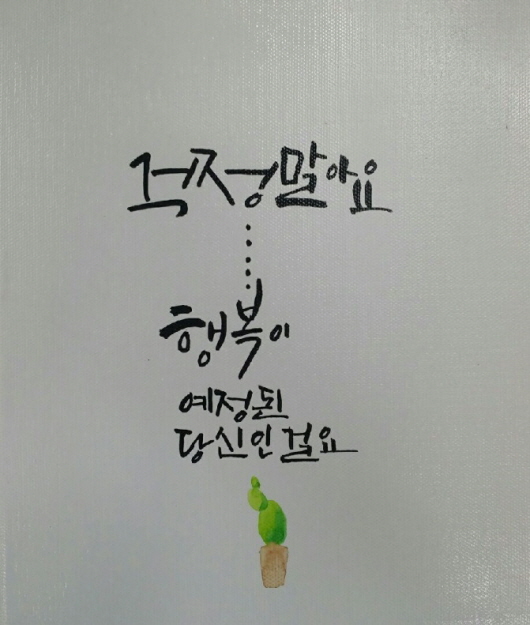 걱정말아요
행복이
예정된
당신인걸요